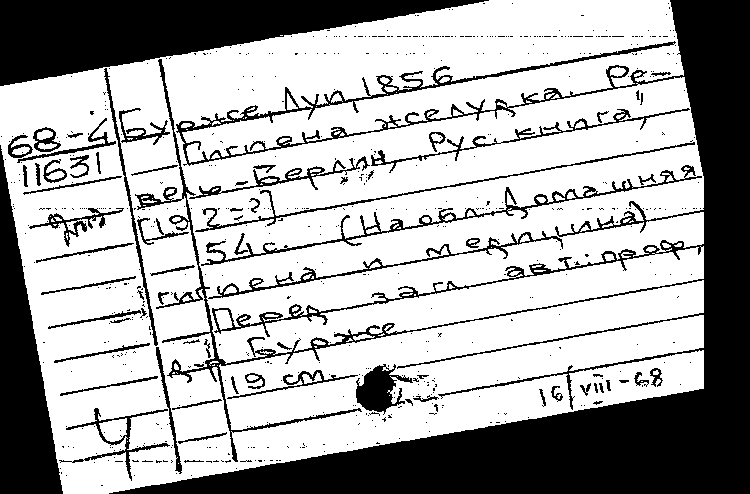 68-4
11631
Бурже, Луи, 1856
Гигиена желудка. Ре-
вель-Берлин, „Рус. книга",
[192=?]
54с. (На обл.: Домашняя
гигиена и медицина)
Перед загл. авт.: проф.
д-р Бурже
19 cm.
Ч
16/VIII-68